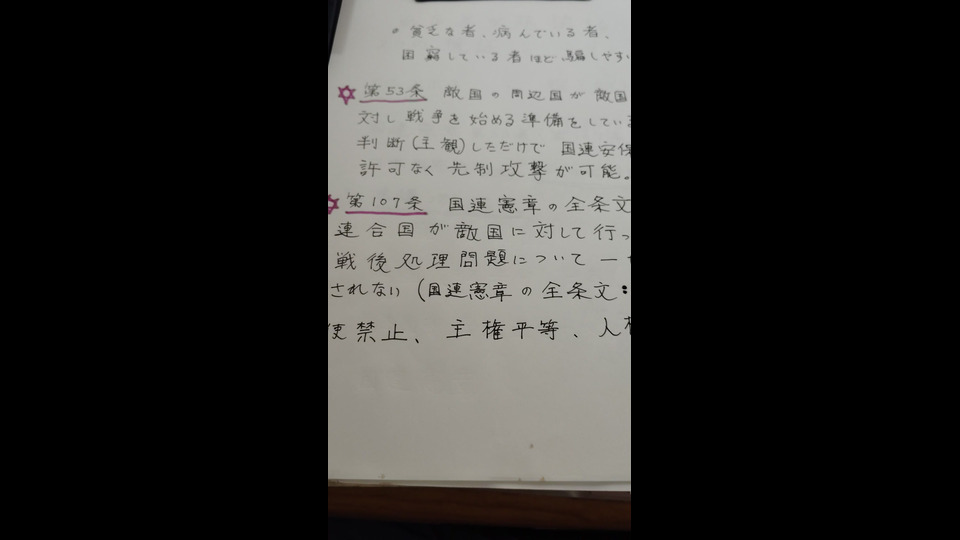 ○ 貧乏な者、病んでいる者、
困窮している者ほど騙しやすい
第53条 敵国の周辺国が敵国
対し戦争を始める準備をしている
判断(主観)しただけで 国連安保
許可なく先制攻撃が可能。
第107条 国連憲章の全条文
連合国が敵国に対して行っ
戦後処理問題について 一
されない (国連憲章の全条文:
使禁止、主権平等、人権